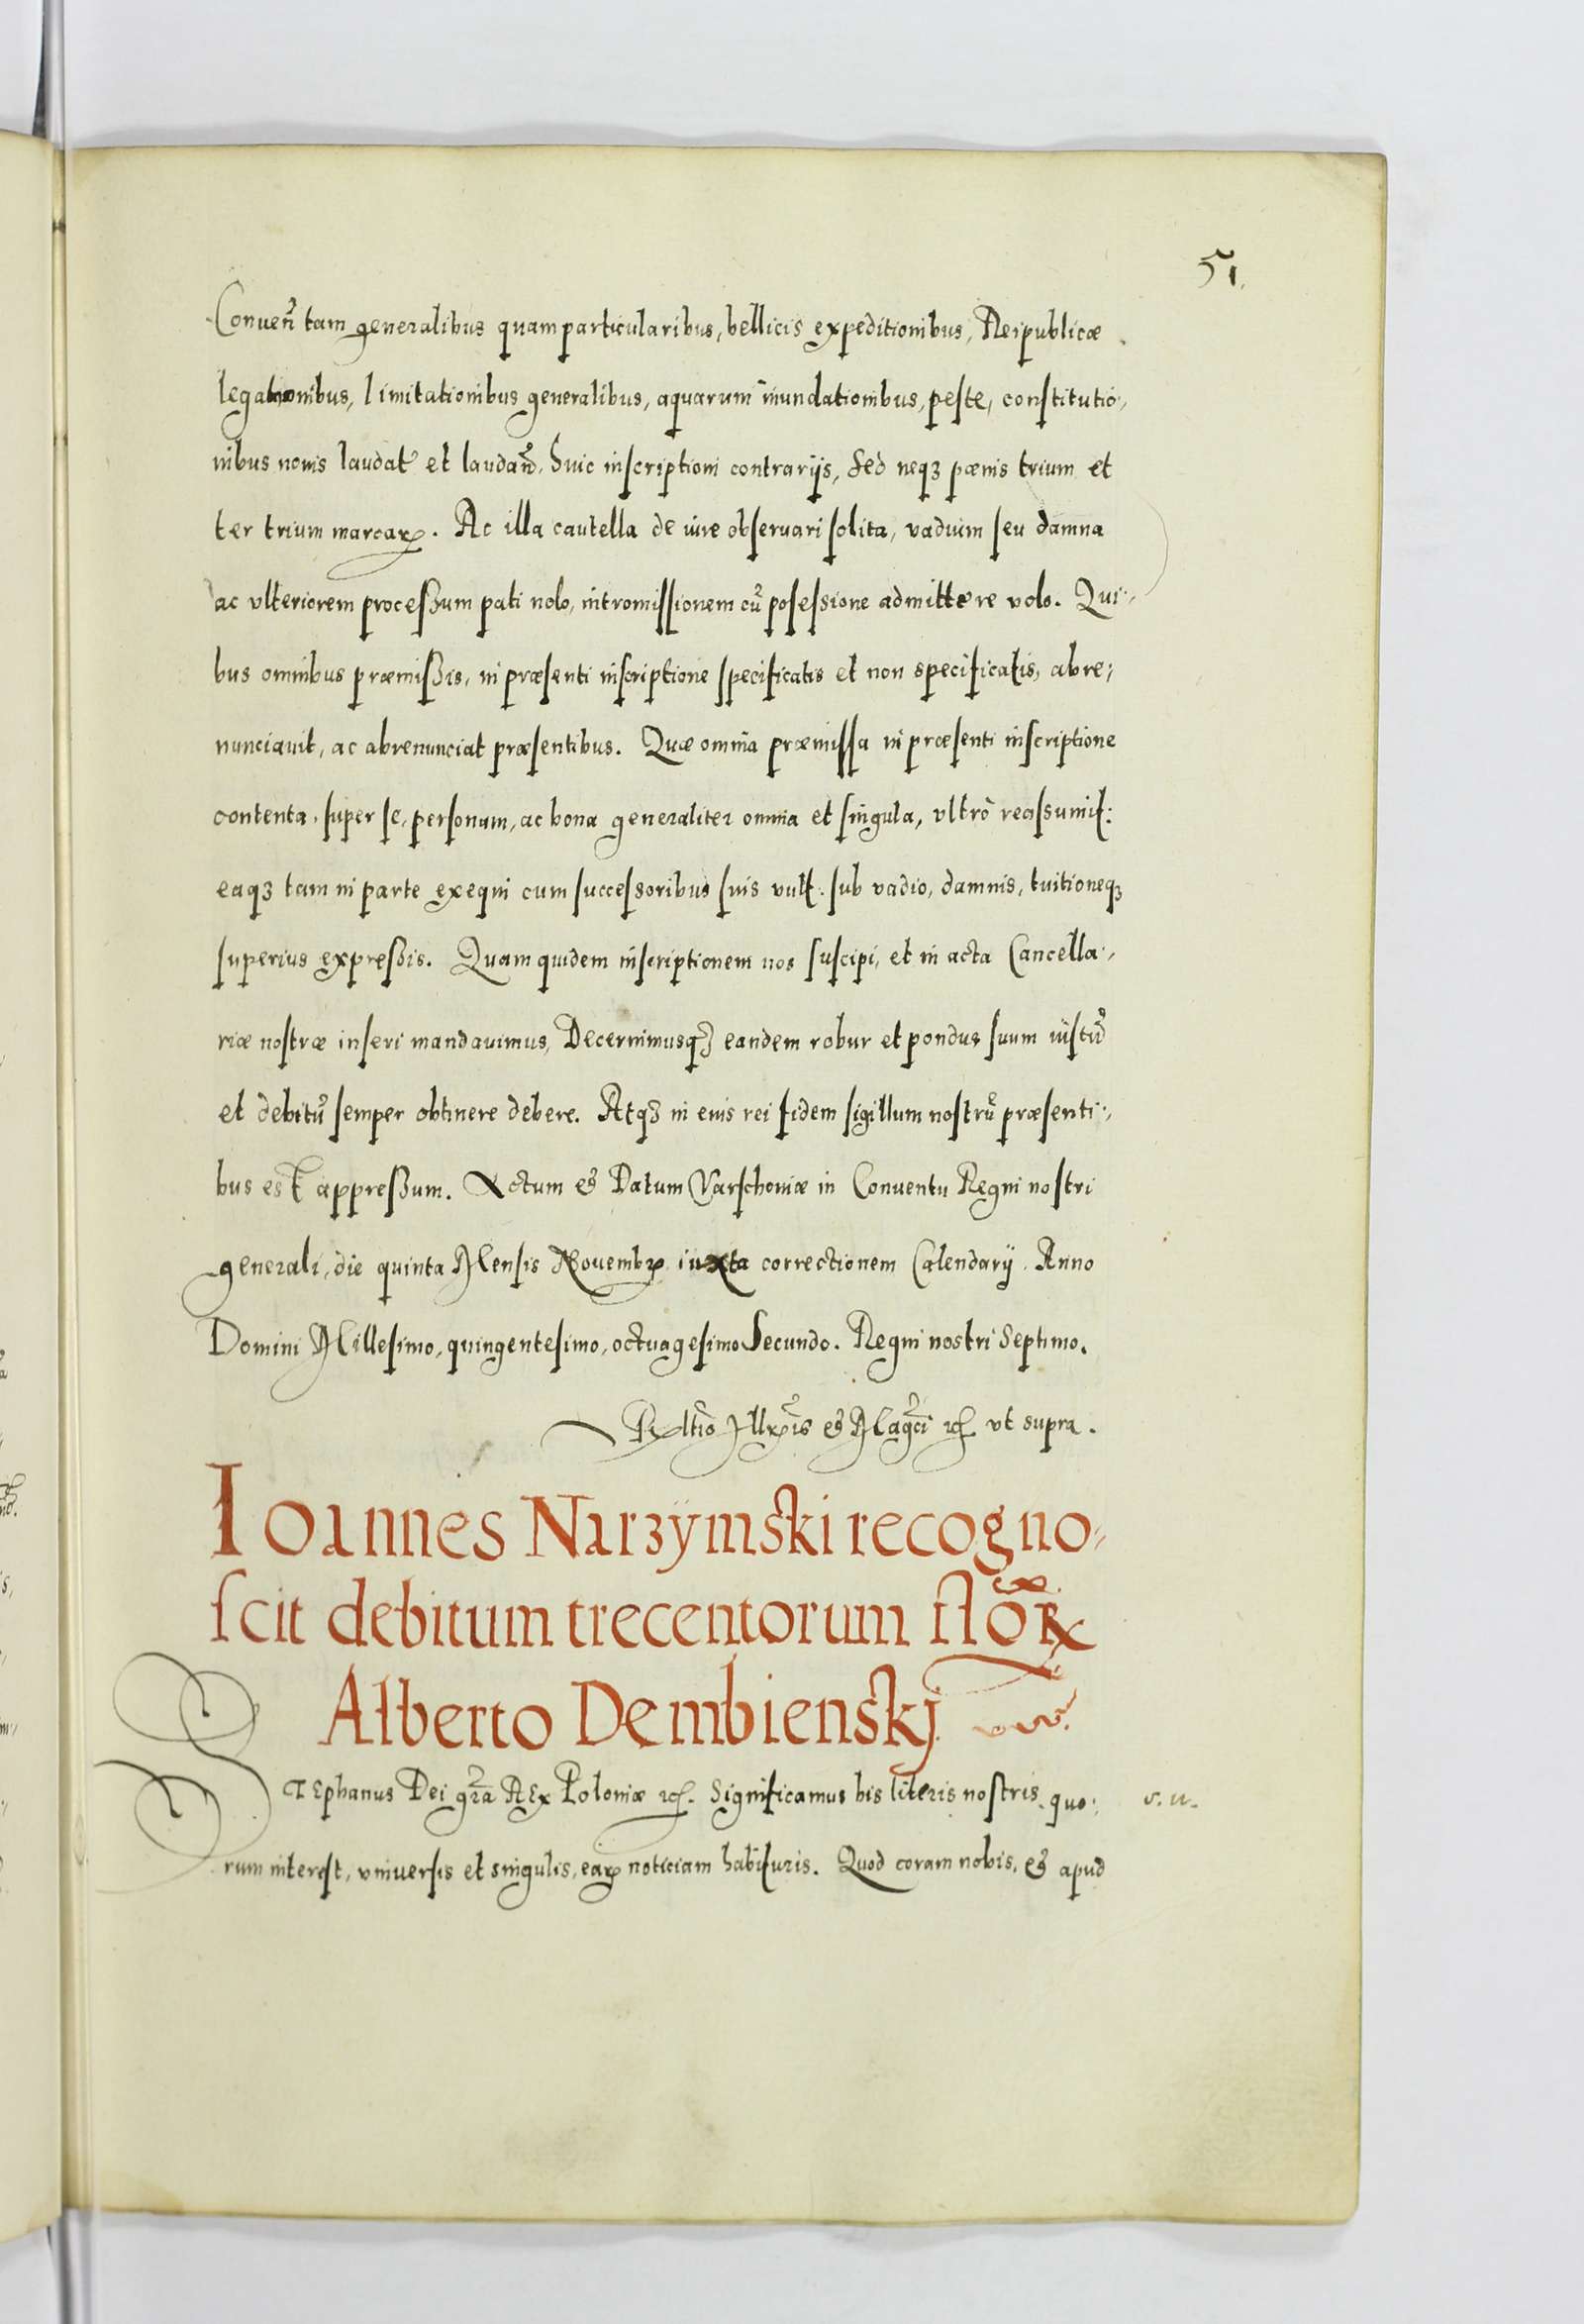 51.
Conven̄ tam generalibus quam particularibus, bellicis expeditionibus, Reipublicæ
legationibus, limitationibus generalibus, aquarum inundationibus, peste, constitutio-
nibus novis laudat et laudan̄. huic inscriptioni contrariis, Sed neqꝫ pœnis trium et
ter trium marcaꝝ. Ac illa cautella de iure observari solita, vadium seu damna
ac vlteriorem processum pati nolo, intromissionem cū posessione admittere volo. Qui-
bus omnibus præmissis, in præsenti inscriptione specificatis et non specificatis, abre-
nunciavit, ac abrenunciat præsentibus. Quæ omnia præmissa in præsenti inscriptione
contenta, super se, personam, ac bona generaliter omnia et singula, vltrò reassumit:
eaqꝫ tam in parte exequi cum successoribus suis vult. sub vadio, damnis, tuitioneqꝫ
superius expressis. Quam quidem inscriptionem nos suscipi, et in acta Cancella-
riæ nostræ inseri mandavimus, Decernimusqꝫ eandem robur et pondus suum iustū
et debitū semper obtinere debere. Atqꝫ in eius rei fidem sigillum nostrū præsenti-
bus est appressum. Actum & Datum Varschoviæ in Conventu Regni nostri
generali, die quinta Mensis Novembꝝ iuxta correctionem Calendarij. Anno
Domini Millesimo, quingentesimo, octuagesimo Secundo. Regni nostri Septimo.
Rxltio Illꝝis & Magci ꝛc. vt supra.
Ioannes Narzÿmski recogno-
scit debitum trecentorum flōꝝ
Alberto Dembienskj
STEphanus Dei gr̄a REx Poloniæ ꝛc. Significamus his literis nostris quo-
v. u.
rum interest, vniversis et singulis, eaꝝ noticiam habituris. Quod coram nobis, & apud